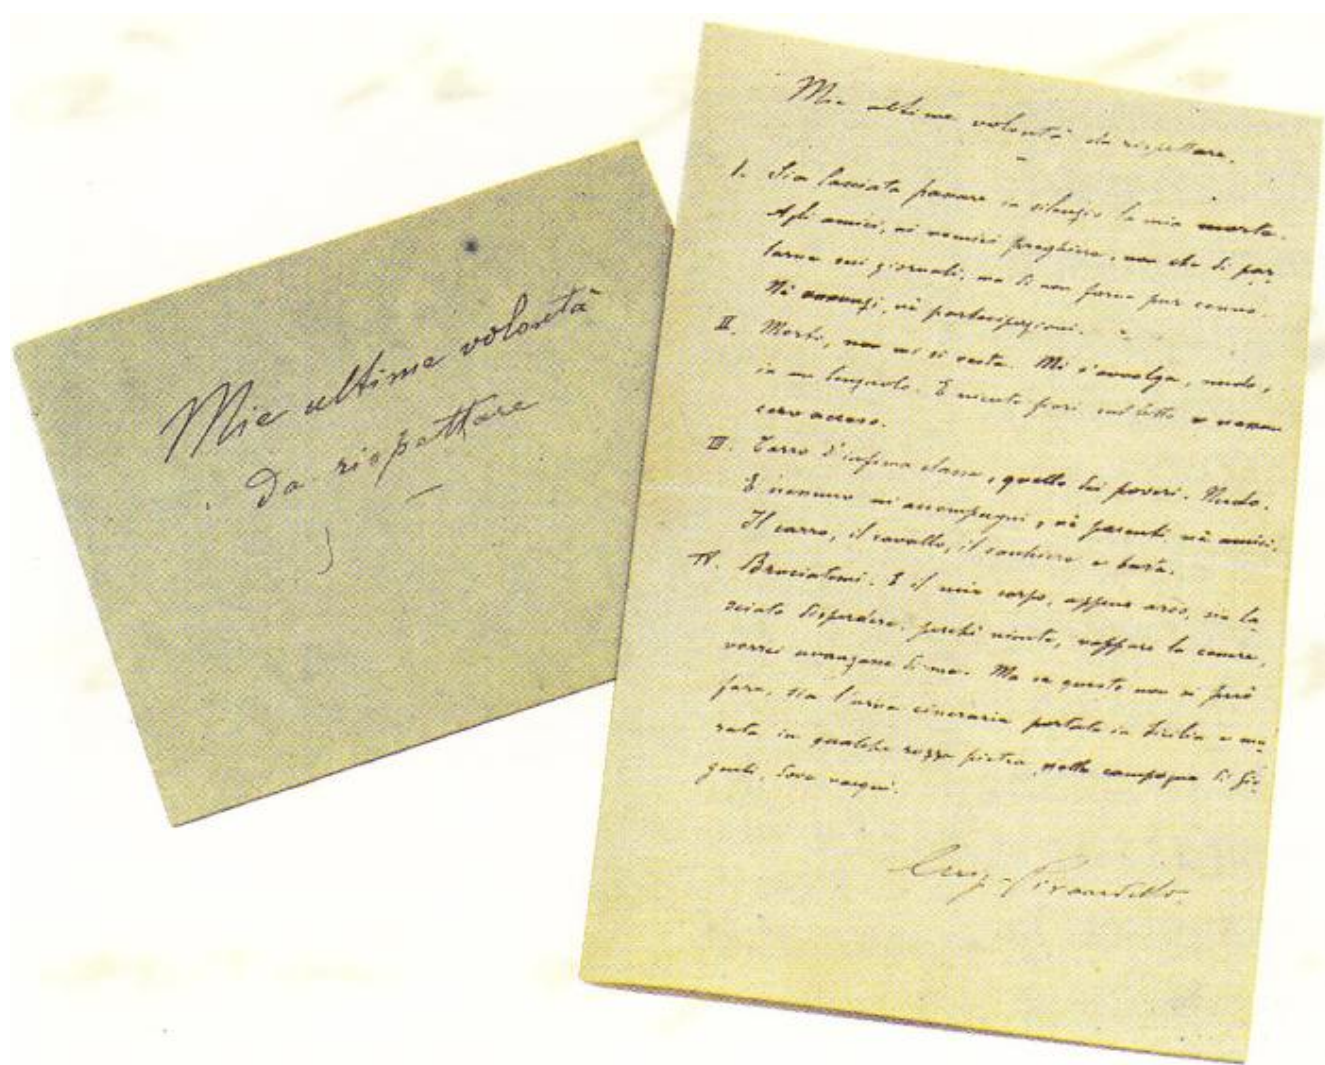 Mie ultime volontà
da rispettare
Mie ultime volontà da rispettare.
I. Sia lasciata passare in silenzio la mia morte.
Agli amici, ai nemici preghiera, non che di par-
larne sui giornali, ma di non farne pur cenno.
Nè annunzi, nè partecipazioni.
II. Morto, non mi si vesta. Mi s'avvolga, nudo,
in un lenzuolo. E niente fiori sul letto e nessun
cero acceso.
III. Carro d'infima classe, quello dei poveri. Nudo.
E nessuno mi accompagni, nè parenti nè amici.
Il carro, il cavallo, il cocchiere e basta.
IV. Bruciatemi. E il mio corpo, appena arso, sia la-
sciato disperdere; perchè niente, neppure la cenere,
vorrei avanzasse di me. Ma se questo non si può
fare, sia l'urna cineraria portata in Sicilia e mu-
rata in qualche rozza pietra nella campagna di Gir-
genti, dove nacqui.
Luigi Pirandello